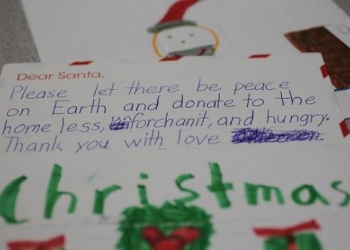 Dear Santa,
Please let there be peace
on Earth and donate to the
home less, unforchanit, and hungry.
Thank you with love
Christmas